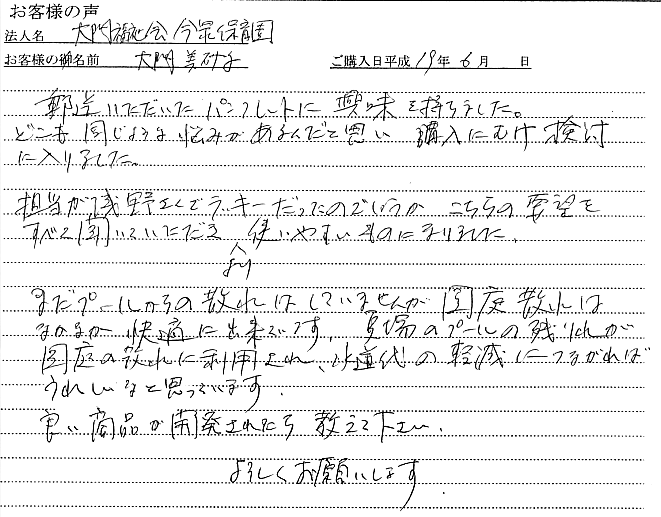 お客様の声
法人名 大門福祉会 今泉保育園
お客様の御名前 大門 美砂子 ご購入日平成 19年 6月 日
郵送いただいたパンフレットに興味を持ちました。
どこも同じような悩みがあるんだと思い 購入にむけ検討
に入りました。
担当が浅野さんでラッキーだったのでしょうか こちらの要望を
すべて聞いていただき 使いやすいものになりました。
より
まだプールからの散水はしていませんが園庭散水は
なかなか快適に出来ています。夏場のプールの残り水が
園庭の散水に利用され、水道代の軽減につながれば
うれしいなと思っています。
良い商品が開発されたら教えて下さい。
よろしくお願いします